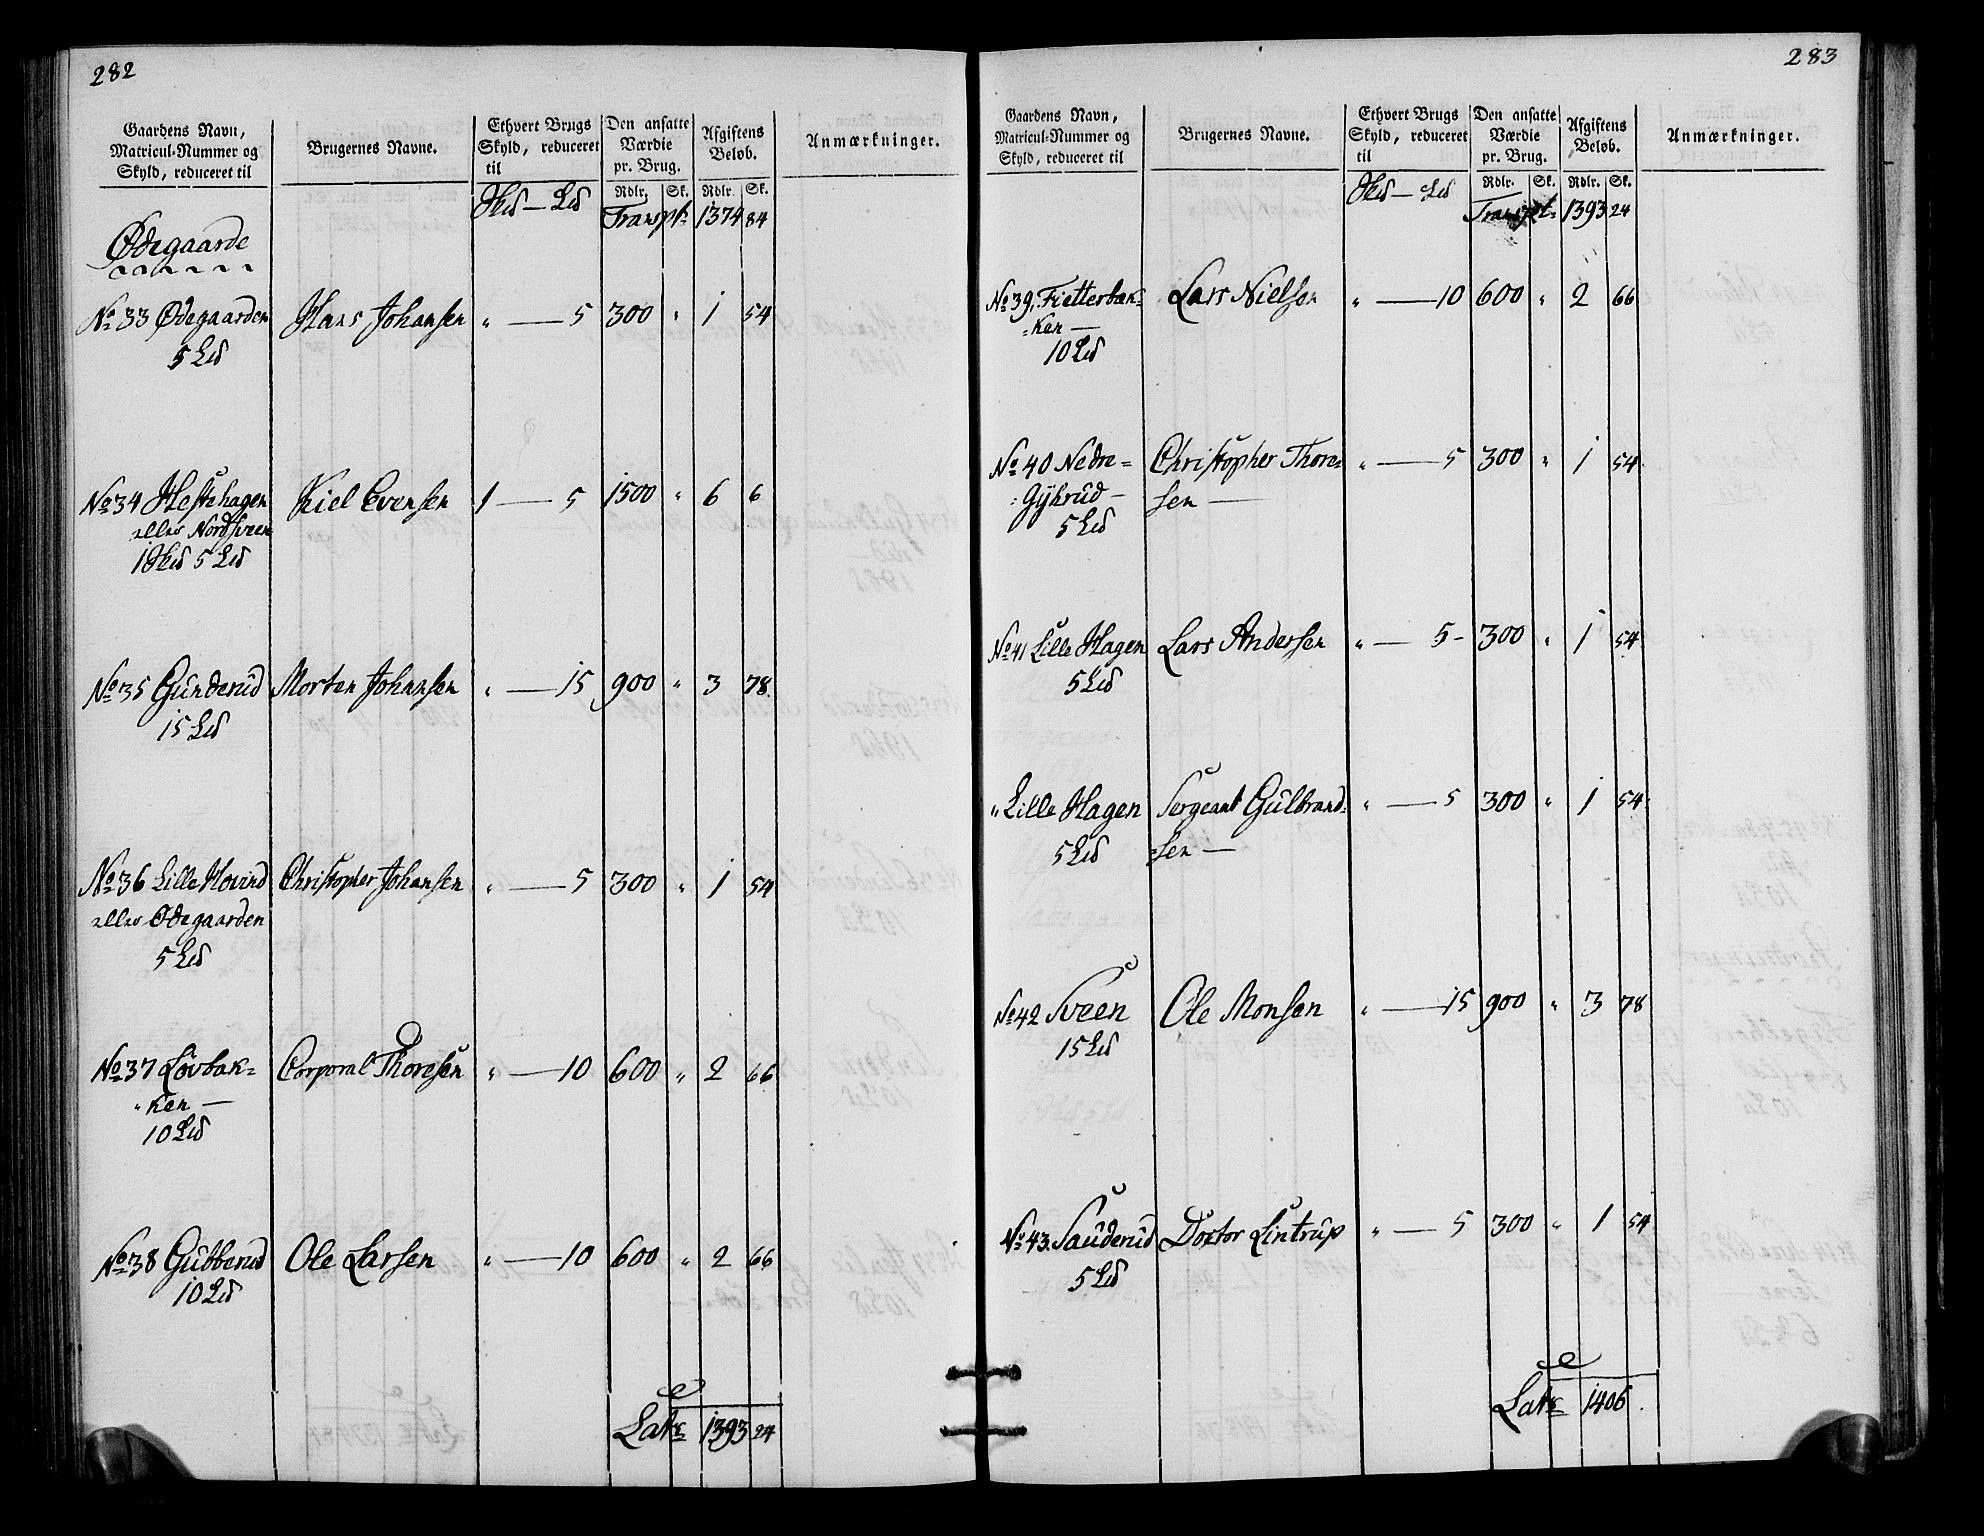 282
Gaardens Navn, Matricul-Nummer og Skyld, reduceret til
Brugernes Navne.
Ethvert Brugs Skyld, reduceret til
Den ansatte Værdie pr. Brug.
Afgiftens Beløb.
Anmærkninger.
Rdlr. Sk. Rdlr. Sk.
Hud — Ld Transpt: 1374 84
Ødegaarde
No 33 Ødegaarden Hans Johansen " — 5 300 " 1 54
5 Ld
No 34 Hestehagen Kiel Evensen 1 — 5 1500 " 6 6
eller Nordsveen
1 Hud 5 Ld
No 35 Gunderud Morten Johansen " — 15 900 " 3 78
15 Ld
No 36 Lille Hovind Christopher Johansen " — 5 300 " 1 54
eller Ødegaarden
5 Ld
No 37 Løvbak= Corporal Thoresen " — 10 600 " 2 66
ken —
10 Ld
No 38 Gubberud Ole Larsen " — 10 600 " 2 66
10 Ld
Late 1393 24
283
Gaardens Navn, Matricul-Nummer og Skyld, reduceret til
Brugernes Navne.
Ethvert Brugs Skyld, reduceret til
Den ansatte Værdie pr. Brug.
Afgiftens Beløb.
Anmærkninger.
Rdlr. Sk. Rdlr. Sk.
Hud — Ld Transpt: 1393 24
No 39, Fietterbak= Lars Nielsen " — 10 600 " 2 66
=ken —
10 Ld
No 40 Nedre= Christopher Thore= " — 5 300 " 1 54
:Gÿhrud — sen —
5 Ld
No 41 Lille Hagen Lars Andersen " — 5 - 300 " 1 54
5 Ld
" Lille Hagen Sergeant Gulbrand= " — 5 300 " 1 54
5 Ld =sen —
No 42 Sveen Ole Monsen " — 15 900 " 3 78
15 Ld
No 43. Sauderud Doctor Lintrup " — 5 300 " 1 54
5 Ld
Late 1406 .